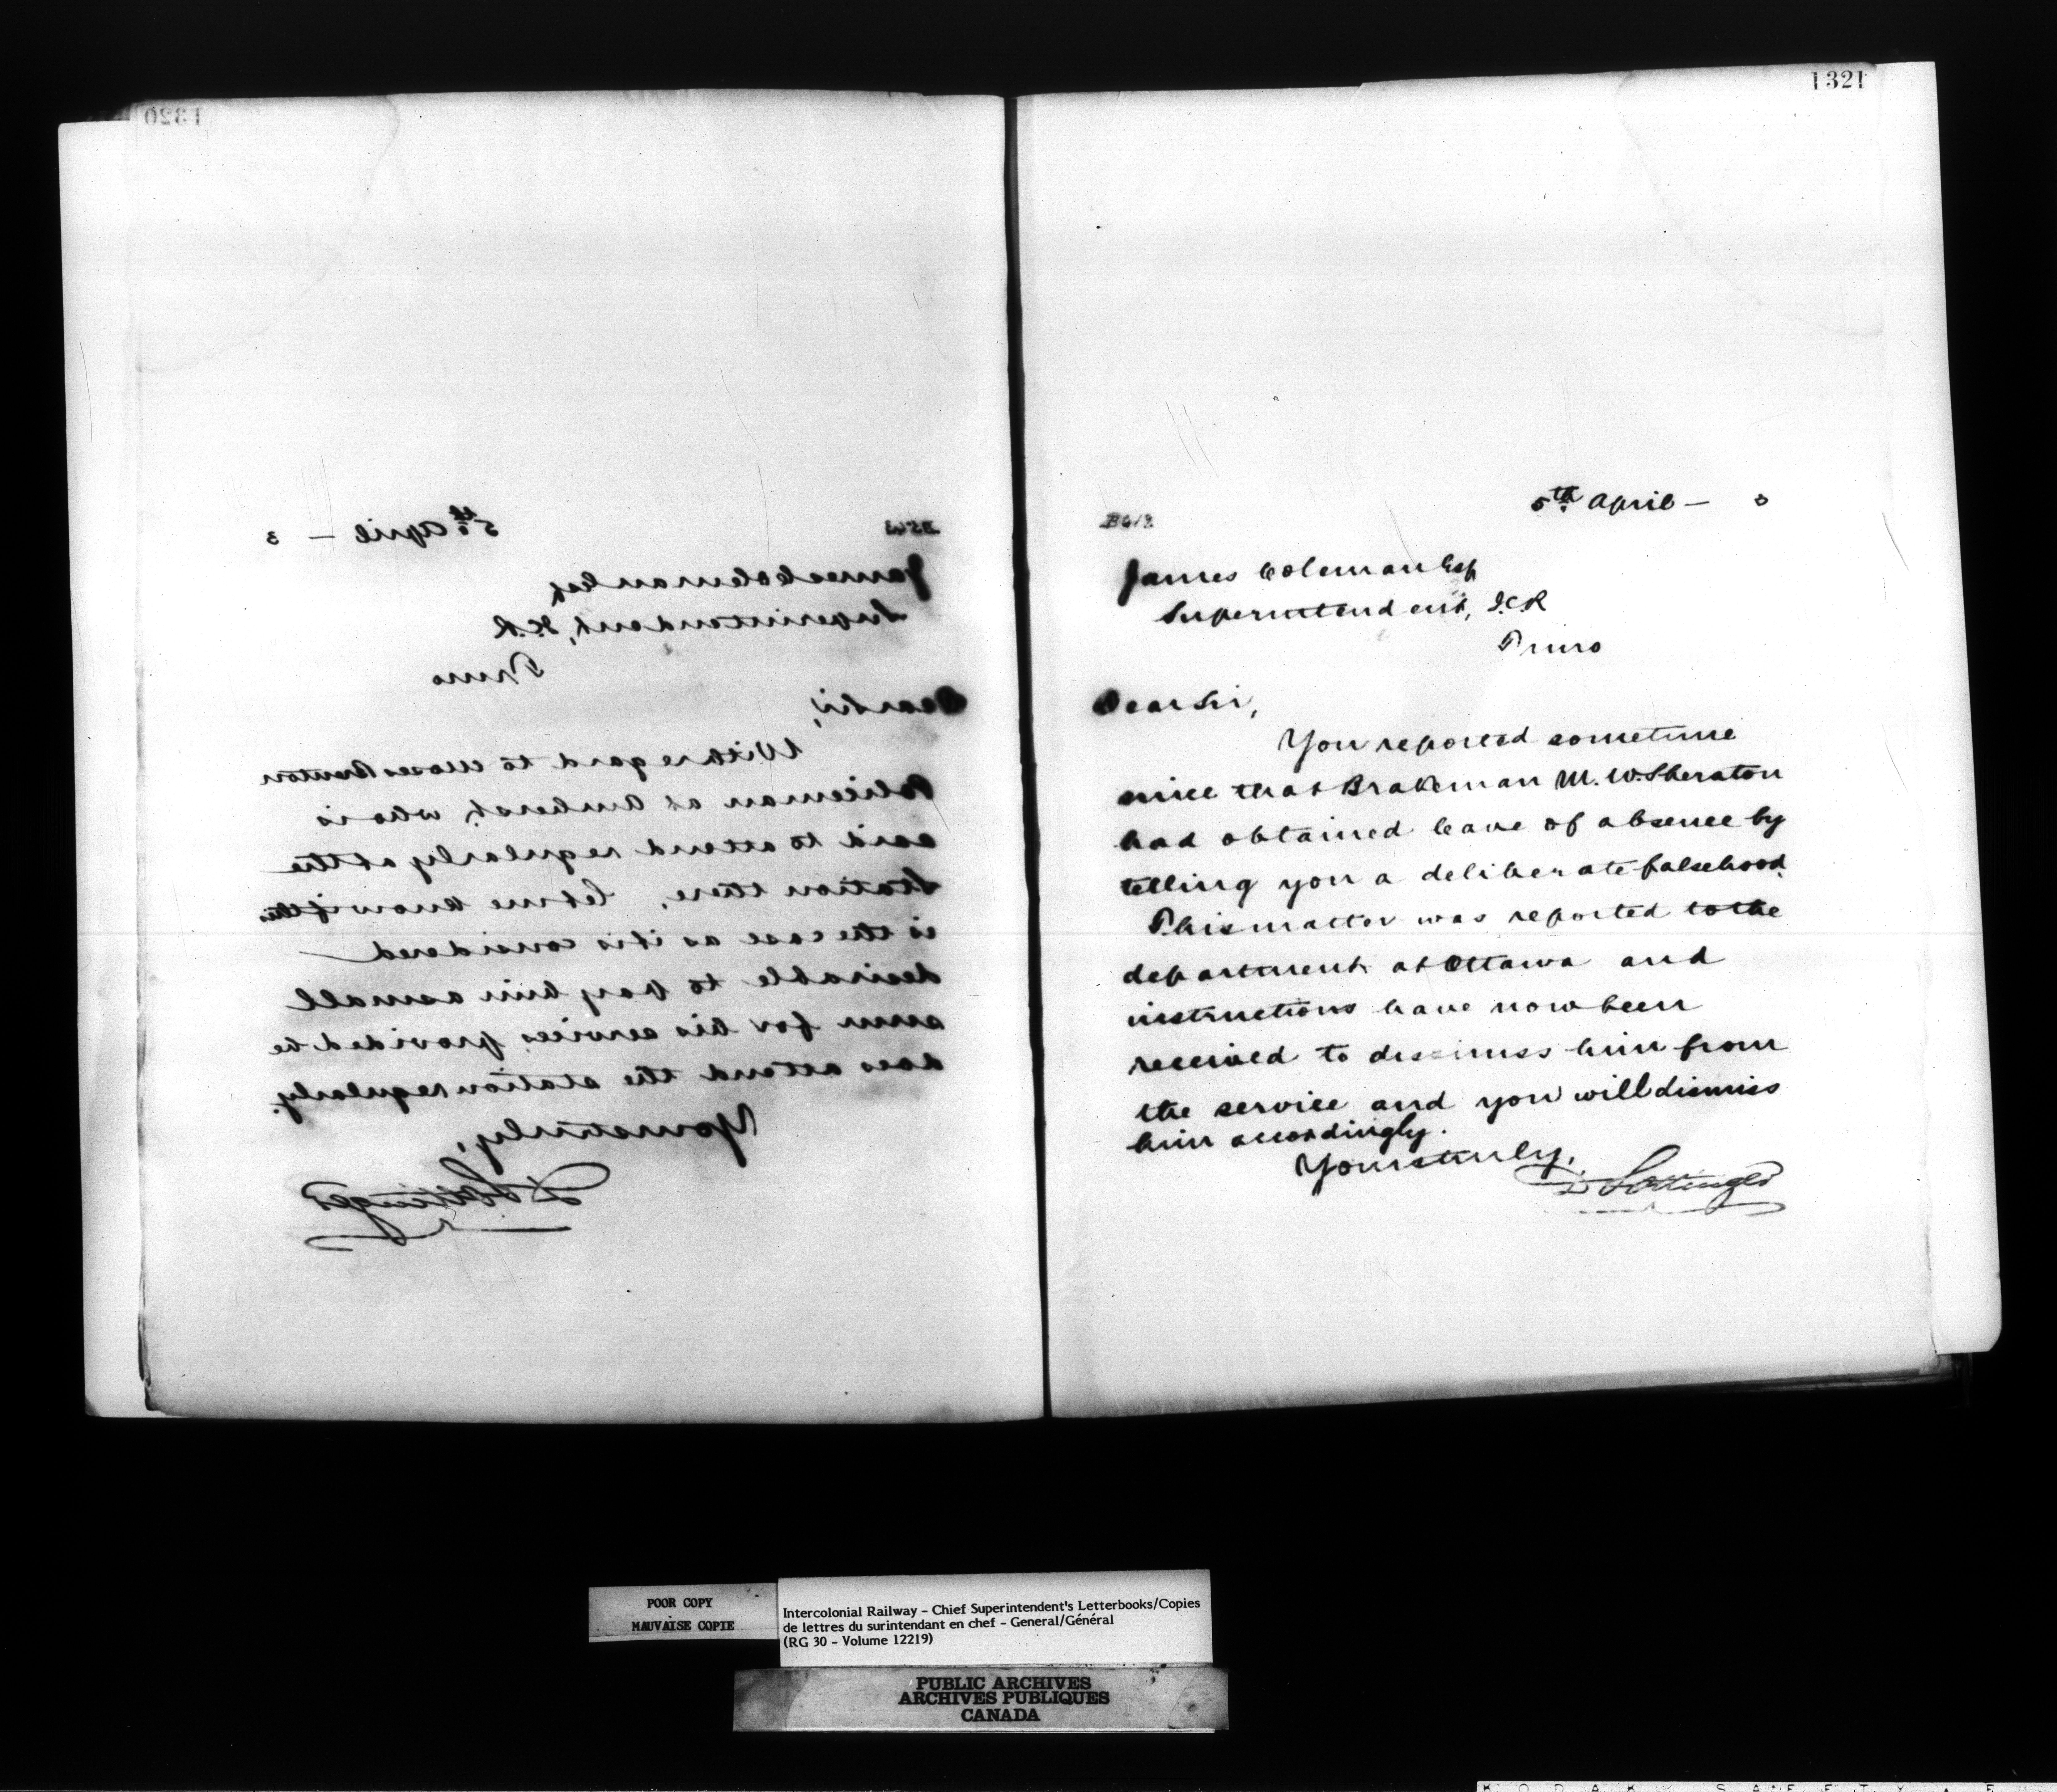 1320
5th April — 3
James Coleman Esq
Superintendent, I.C.R
Truro
Dear Sir,
With regard to Moses Brenton
Policeman at Amherst, who is
said to attend regularly at the
Station there, let me know if this
is the case as it is considered
desirable to pay him a small
sum for his services, provided he
does attend the station regularly.
Yours truly,
D Pottinger
1321
5th April — 3
James Coleman Esq
Superintendent, I.C.R
Truro
Dear Sir,
You reported sometime
since that Brakeman M. W. Sheraton
had obtained leave of absence by
telling you a deliberate falsehood.
This matter was reported to the
department at Ottawa and
instructions have now been
received to dismiss him from
the service and you will dismiss
him accordingly.
Yours truly,
D Pottinger
POOR COPY
MAUVAISE COPIE
Intercolonial Railway - Chief Superintendent's Letterbooks/Copies
de lettres du surintendant en chef - General/Général
(RG 30 - Volume 12219)
PUBLIC ARCHIVES
ARCHIVES PUBLIQUES
CANADA